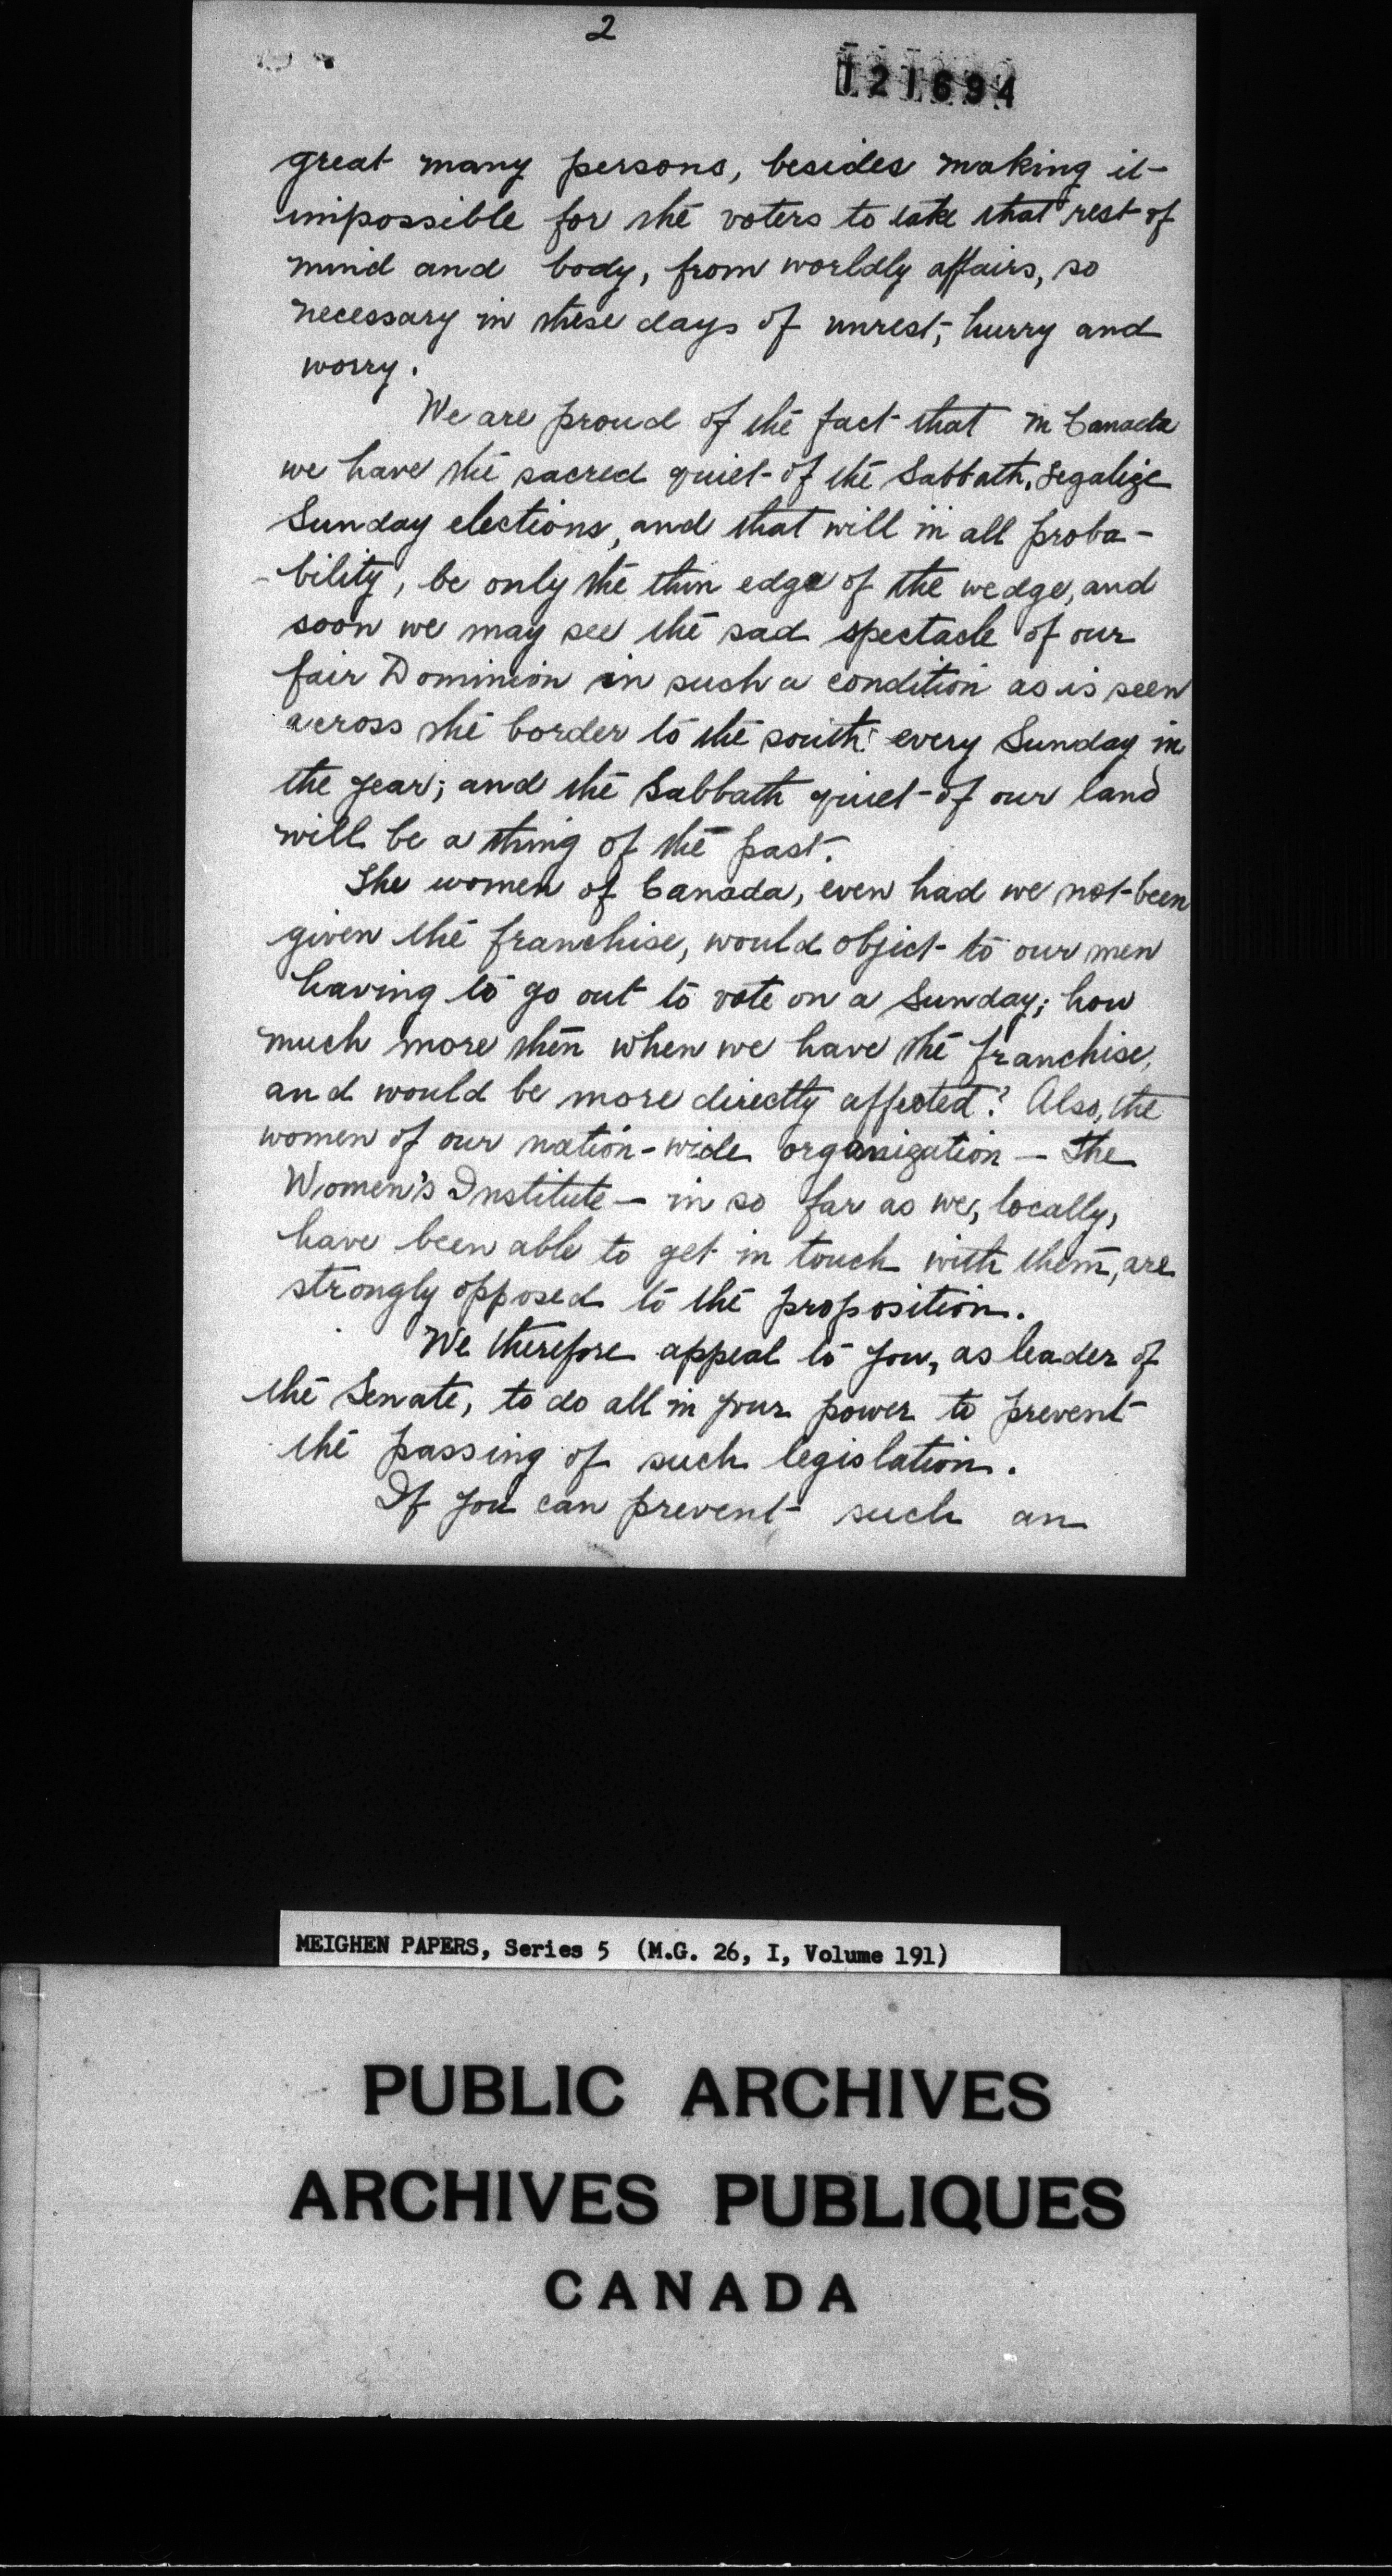 2
121694
great many persons, besides making it
impossible for the voters to take that rest of
mind and body, from worldly affairs, so
necessary in these days of unrest, hurry and
worry.
We are proud of the fact that in Canada
we have the sacred quiet of the Sabbath. Legalize
Sunday elections, and that will in all proba-
-bility, be only the thin edge of the wedge, and
soon we may see the sad spectacle of our
fair Dominion in such a condition as is seen
across the border to the south every Sunday in
the year; and the Sabbath quiet of our land
will be a thing of the past.
The women of Canada, even had we not been
given the franchise, would object to our men
having to go out to vote on a Sunday; how
much more then when we have the franchise,
and would be more directly affected? Also, the
women of our nation-wide organization — the
Women's Institute — in so far as we, locally,
have been able to get in touch with them, are
strongly opposed to the proposition.
We therefore appeal to you, as leader of
the Senate, to do all in your power to prevent
the passing of such legislation.
If you can prevent such an
MEIGHEN PAPERS, Series 5 (M.G. 26, I, Volume 191)
PUBLIC ARCHIVES
ARCHIVES PUBLIQUES
CANADA